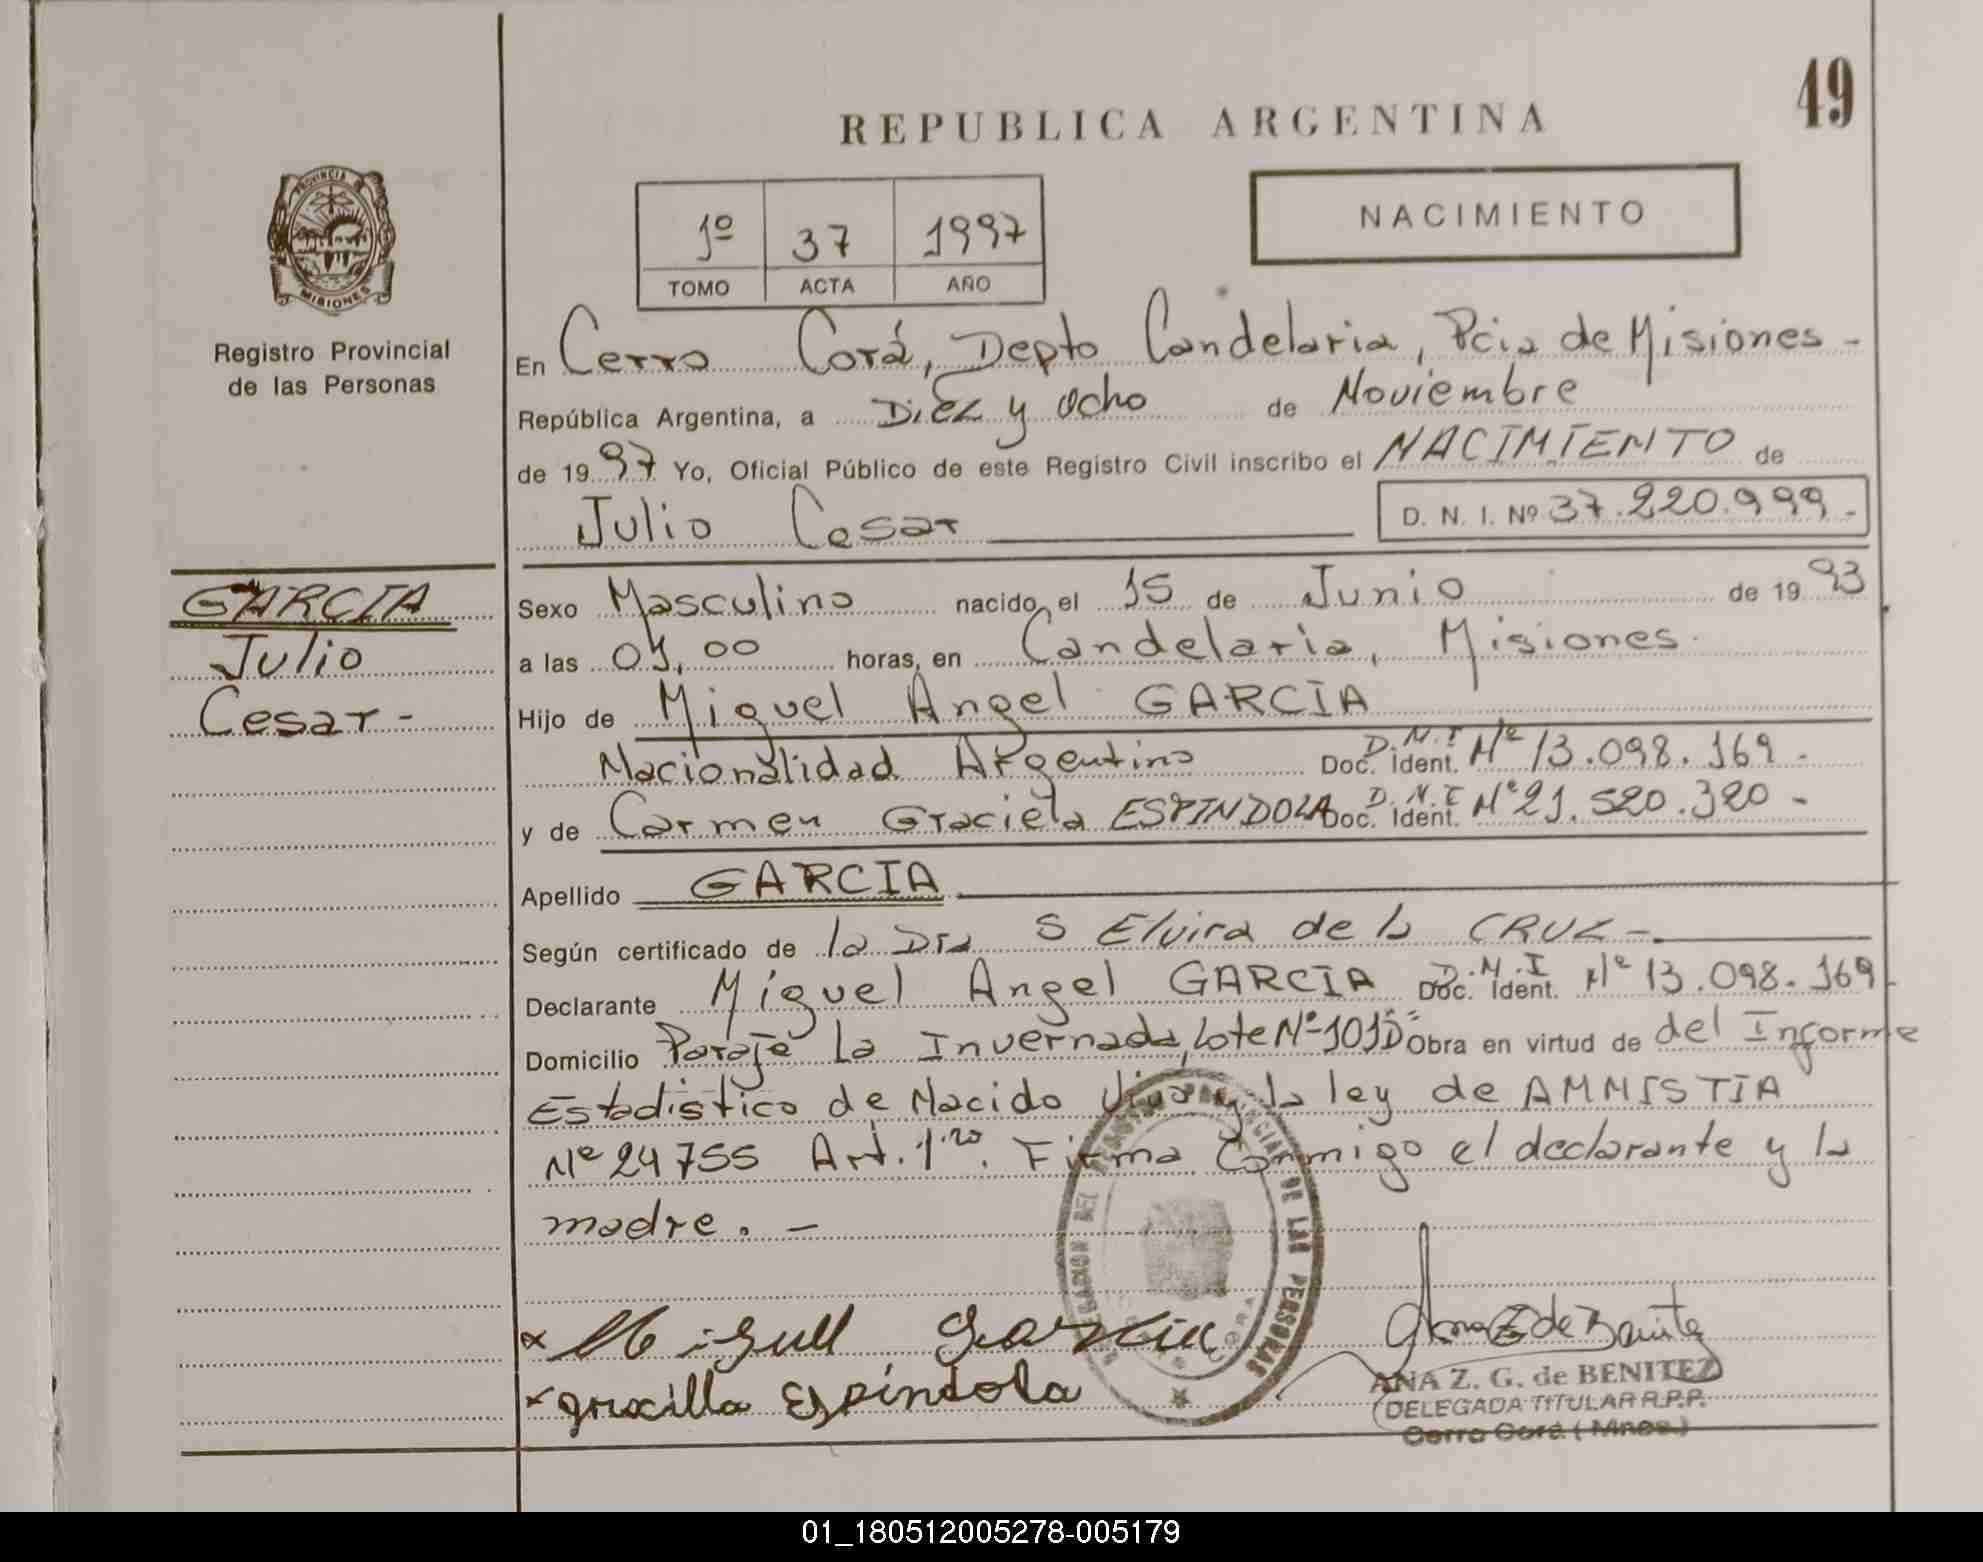 49
REPUBLICA ARGENTINA
NACIMIENTO
1º 37 1997
TOMO ACTA AÑO
PROVINCIA DE
MISIONES
Registro Provincial
de las Personas
En Cerro Corá, Depto Candelaria, Pcia de Misiones -
República Argentina, a Diez y ocho de Noviembre
de 1997 Yo, Oficial Público de este Registro Civil inscribo el NACIMIENTO de
Julio Cesar D. N. I. Nº 37.220.999.-
GARCIA
Julio
Cesar -
Sexo Masculino nacido el 15 de Junio de 1993
a las 01,00 horas, en Candelaria, Misiones.
Hijo de Miguel Angel GARCIA
Nacionalidad Argentino Doc. Ident. D.N.I Nº 13.098.169.-
y de Carmen Graciela ESPINDOLA Doc. Ident. D.N.I Nº 21.520.320.-
Apellido GARCIA
Según certificado de la Dra S Elvira de la CRUZ -
Declarante Miguel Angel GARCIA Doc. Ident. D.N.I Nº 13.098.169
Domicilio Paraje La Invernada, Lote Nº 101"D" Obra en virtud de del Informe
Estadistico de Nacido Vivo y la ley de AMMISTIA
Nº 24755 Art. 1ro. Firma Conmigo el declarante y la
madre. -
DELEGACION DEL REGISTRO PROVINCIAL DE LAS PERSONAS
x Miguel Garcia
x gracilla Espindola
Ana Z de Benitez
ANA Z. G. de BENITEZ
DELEGADA TITULAR R.P.P.
Cerro Corá ( Mnes.)
01_180512005278-005179